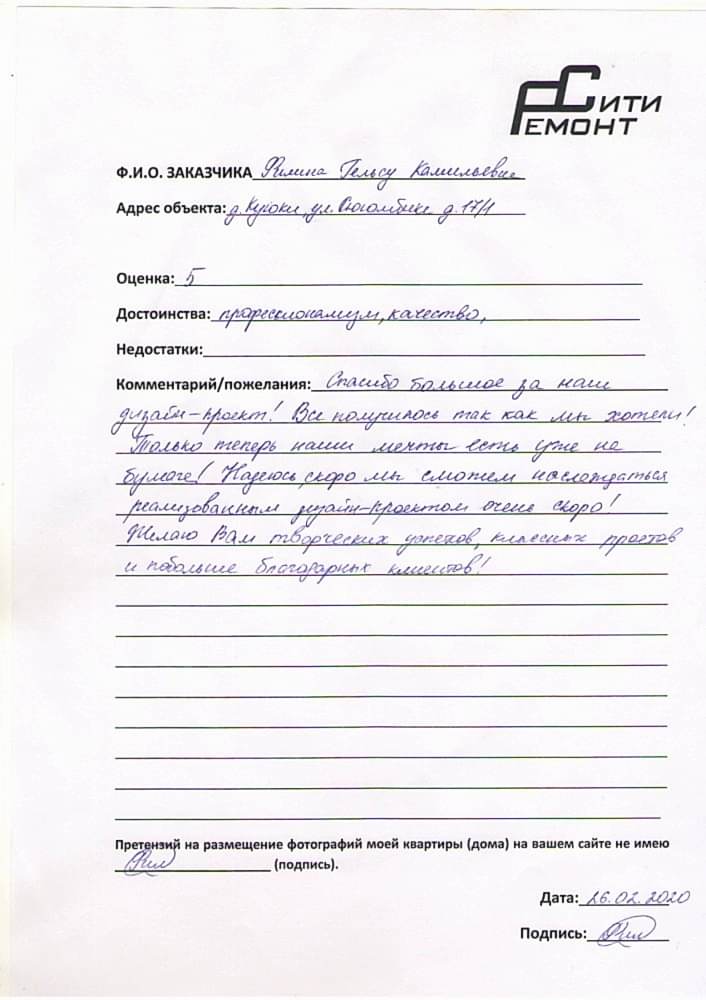 СИТИ
РЕМОНТ
Ф.И.О. ЗАКАЗЧИКА Филина Гельсу Камильевна
Адрес объекта: д. Куюки, ул. Сююмбике д. 17/1
Оценка: 5
Достоинства: профессионализм, качество,
Недостатки:
Комментарий/пожелания: Спасибо большое за наш
дизайн-проект! Все получилось так как мы хотели!
Только теперь наши мечты есть уже на
бумаге! Надеюсь, скоро мы сможем наслаждаться
реализованным дизайн-проектом очень скоро!
Желаю Вам творческих успехов, классных проетов
и побольше благодарных клиентов!
Претензий на размещение фотографий моей квартиры (дома) на вашем сайте не имею
(подпись).
Дата: 26.02.2020
Подпись: